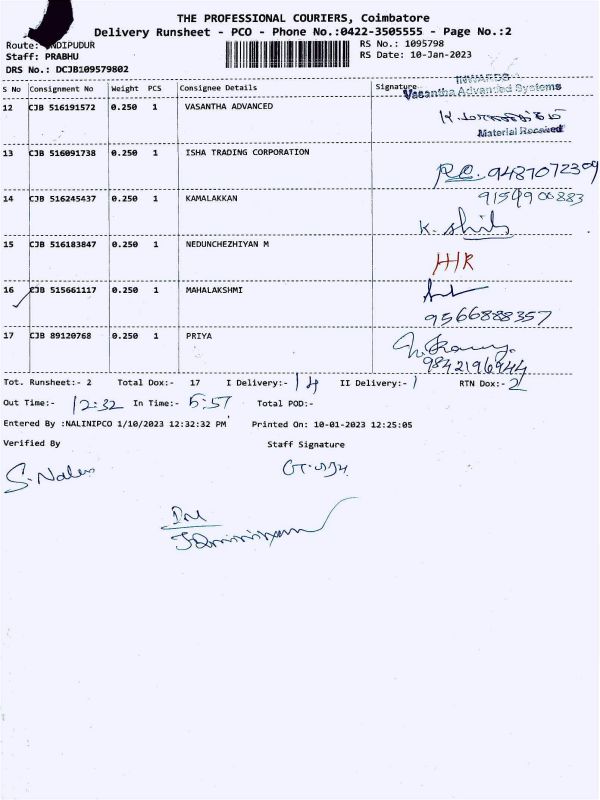 THE PROFESSIONAL COURIERS, Coimbatore
Delivery Runsheet - PCO - Phone No.:0422-3505555 - Page No.:2
Route: NDIPUDUR RS No.: 1095798
Staff: PRABHU RS Date: 10-Jan-2023
DRS No.: DCJB109579802
INWARDS
S No Consignment No Weight PCS Consignee Details Signature Vasantha Advanced Systems
12 CJB 516191572 0.250 1 VASANTHA ADVANCED
Material Received
13 CJB 516091738 0.250 1 ISHA TRADING CORPORATION
9487072309
14 CJB 516245437 0.250 1 KAMALAKKAN 9159900883
K.
15 CJB 516183847 0.250 1 NEDUNCHEZHIYAN M
16 CJB 515661117 0.250 1 MAHALAKSHMI
9566888357
17 CJB 89120768 0.250 1 PRIYA
9842196944
Tot. Runsheet:- 2 Total Dox:- 17 I Delivery:- 14 II Delivery:- 1 RTN Dox:- 2
Out Time:- 12:32 In Time:- 5:57 Total POD:-
Entered By :NALINIPCO 1/10/2023 12:32:32 PM Printed On: 10-01-2023 12:25:05
Verified By Staff Signature